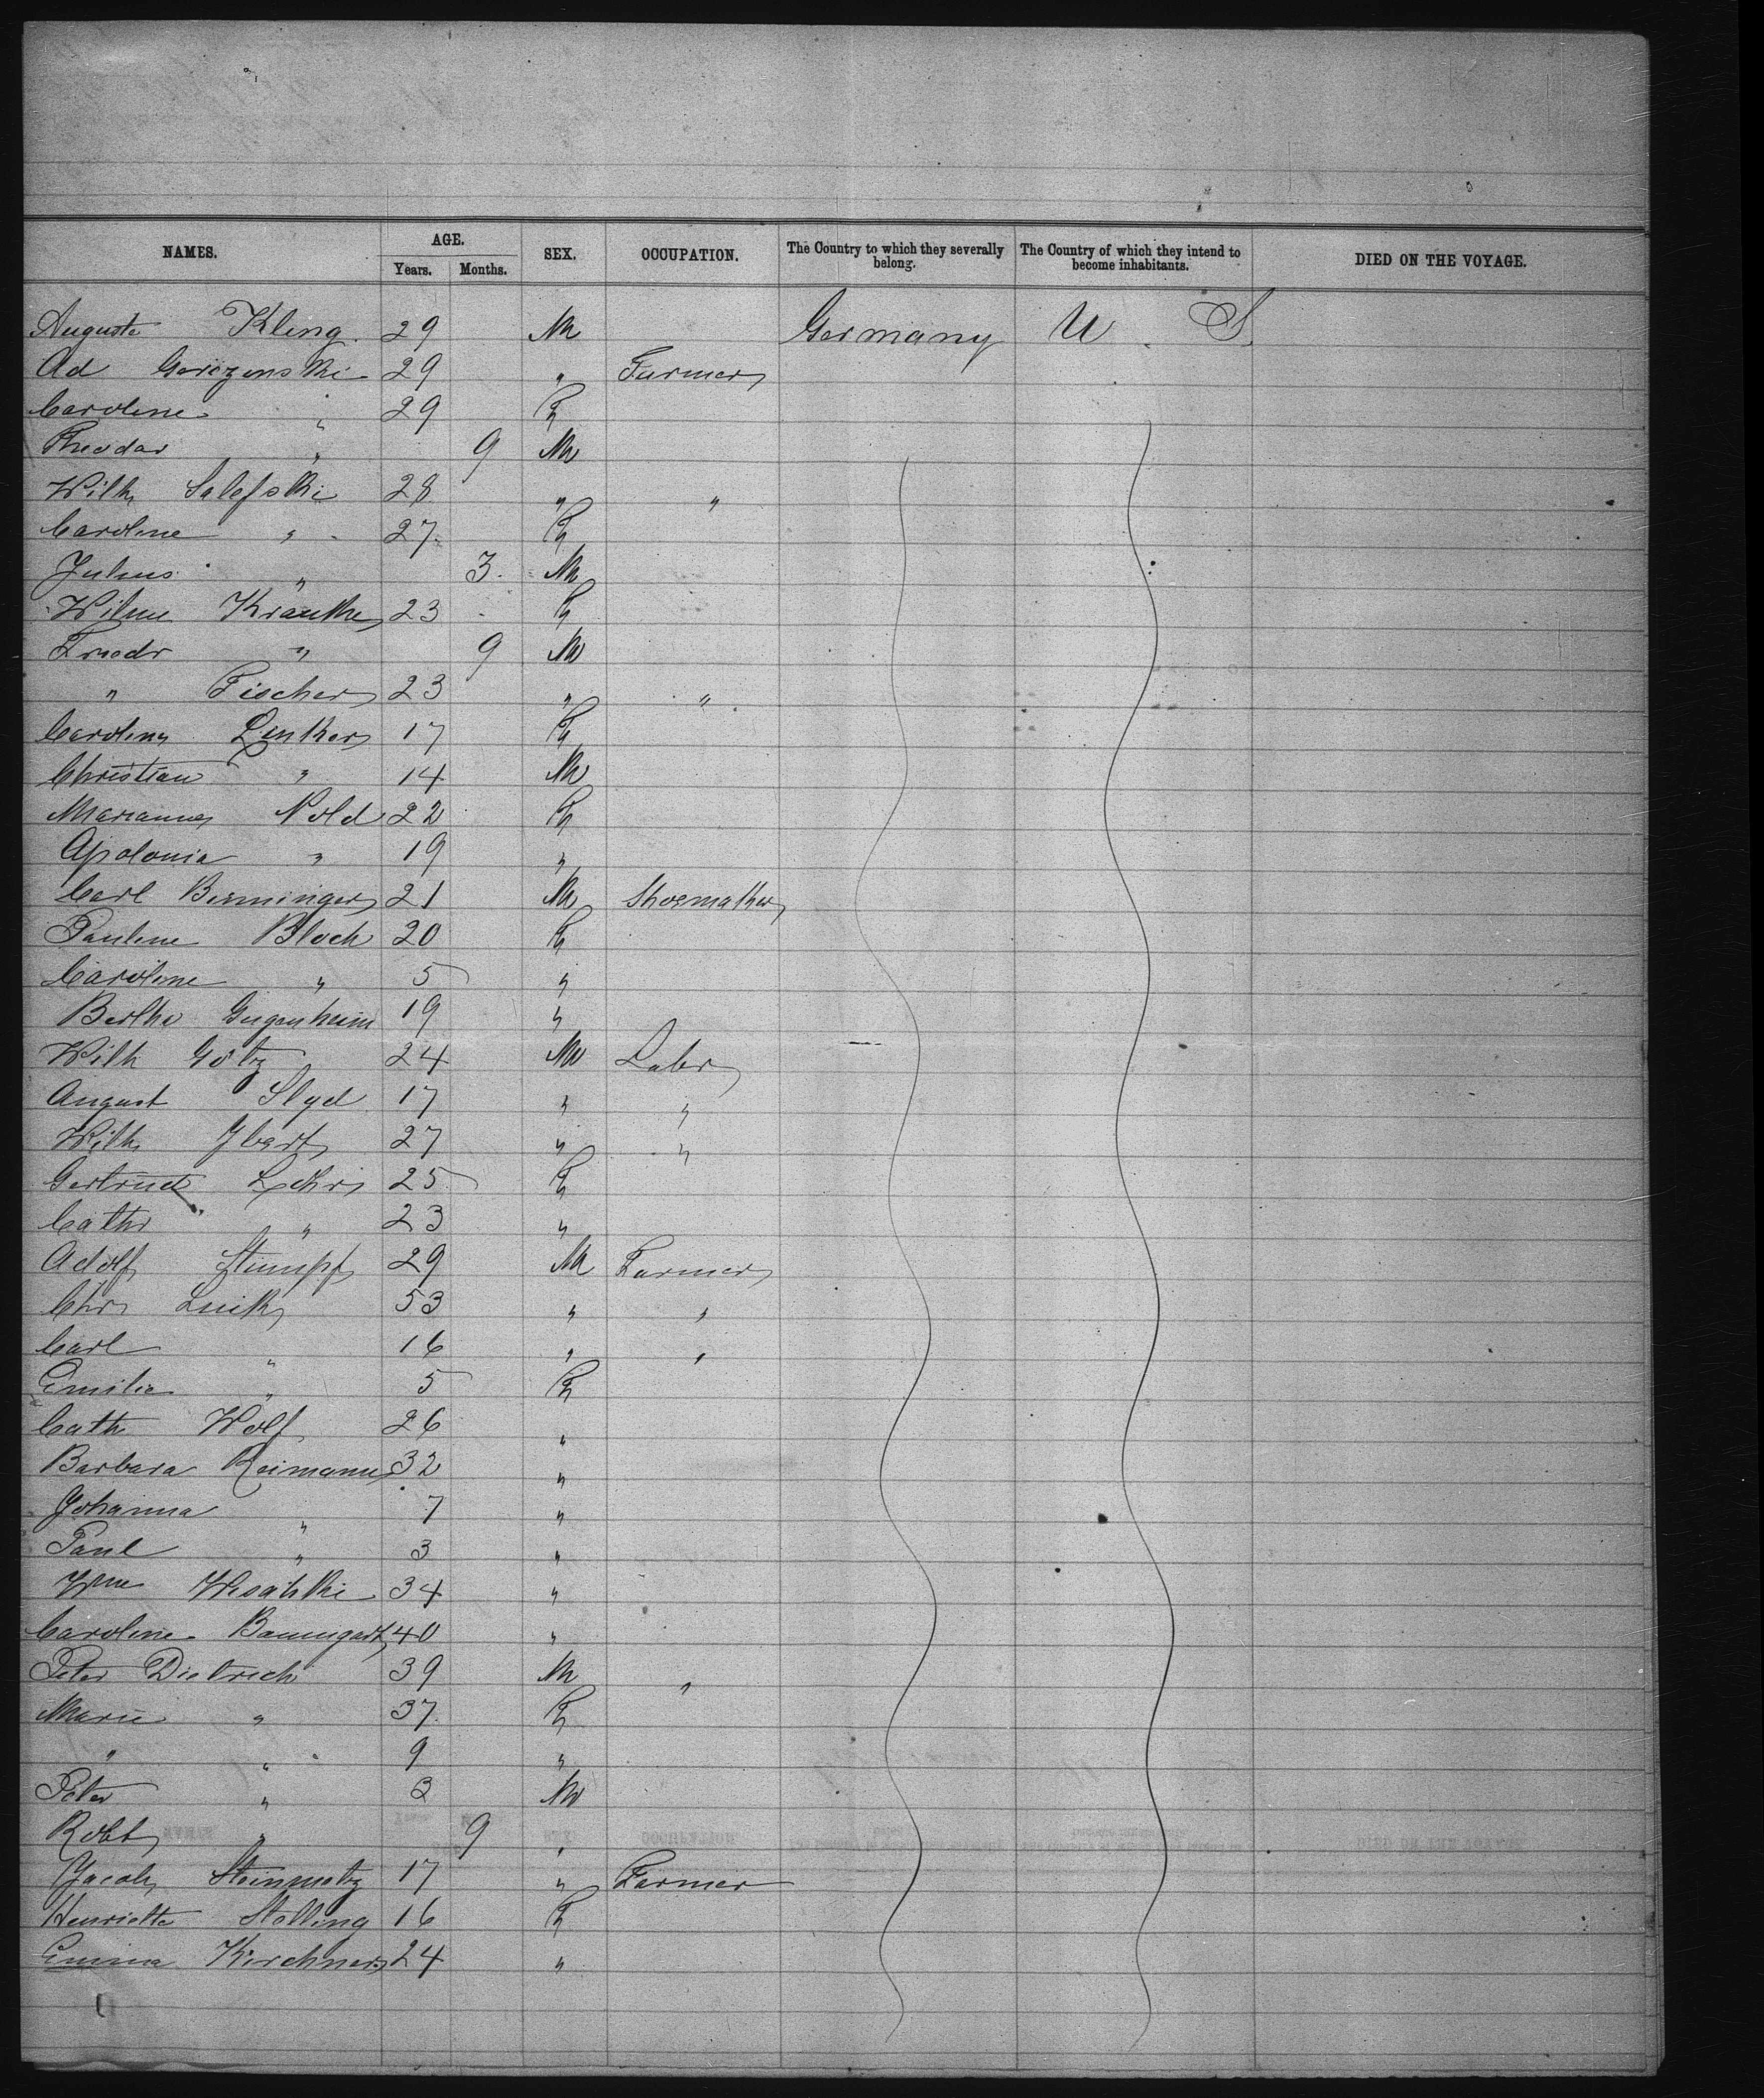 NAMES. AGE. SEX. OCCUPATION. The Country to which they severally belong. The Country of which they intend to become inhabitants. DIED ON THE VOYAGE.
Years. Months.
Auguste Kling 29 M Germany U. S.
Ad 29 " Farmer
Caroline " 29 F
Theodor " 9 M
Wilh Salefski 28 " "
Caroline " 27 F
Julius " 3 M
Wilme Krauthe 23 F
Friedr " 9 M
" Fischer 23 " "
Caroline Linker 17 F
Christian " 14 M
Marianne Nold 22 F
Apolonia " 19 "
Carl Birminger 21 M Shoemaker
Pauline Bloch 20 F
Caroline " 5 "
Bertha Gugenheim 19 "
Wilh Götz 24 M Labr
August 17 " "
Wilh 27 " "
Gertrud Lehr 25 F
Cathr " 23 "
Adolf Stumpf 29 M Farmer
Chr Luik 53 " "
Carl " 16 " "
Emilie " 5 F
Cath Wolf 26 "
Barbara Reimann 32 "
Johanna " 7 "
Paul " 3 "
34 "
Caroline Baumgart 40 "
Peter Dietrich 39 M "
Marie " 37 F
" " 9 "
Peter " 3 M
Robt " 9 "
Jacob Steinmetz 17 " Farmer
Henriette Stelling 16 F
Emma Kirchner 24 "